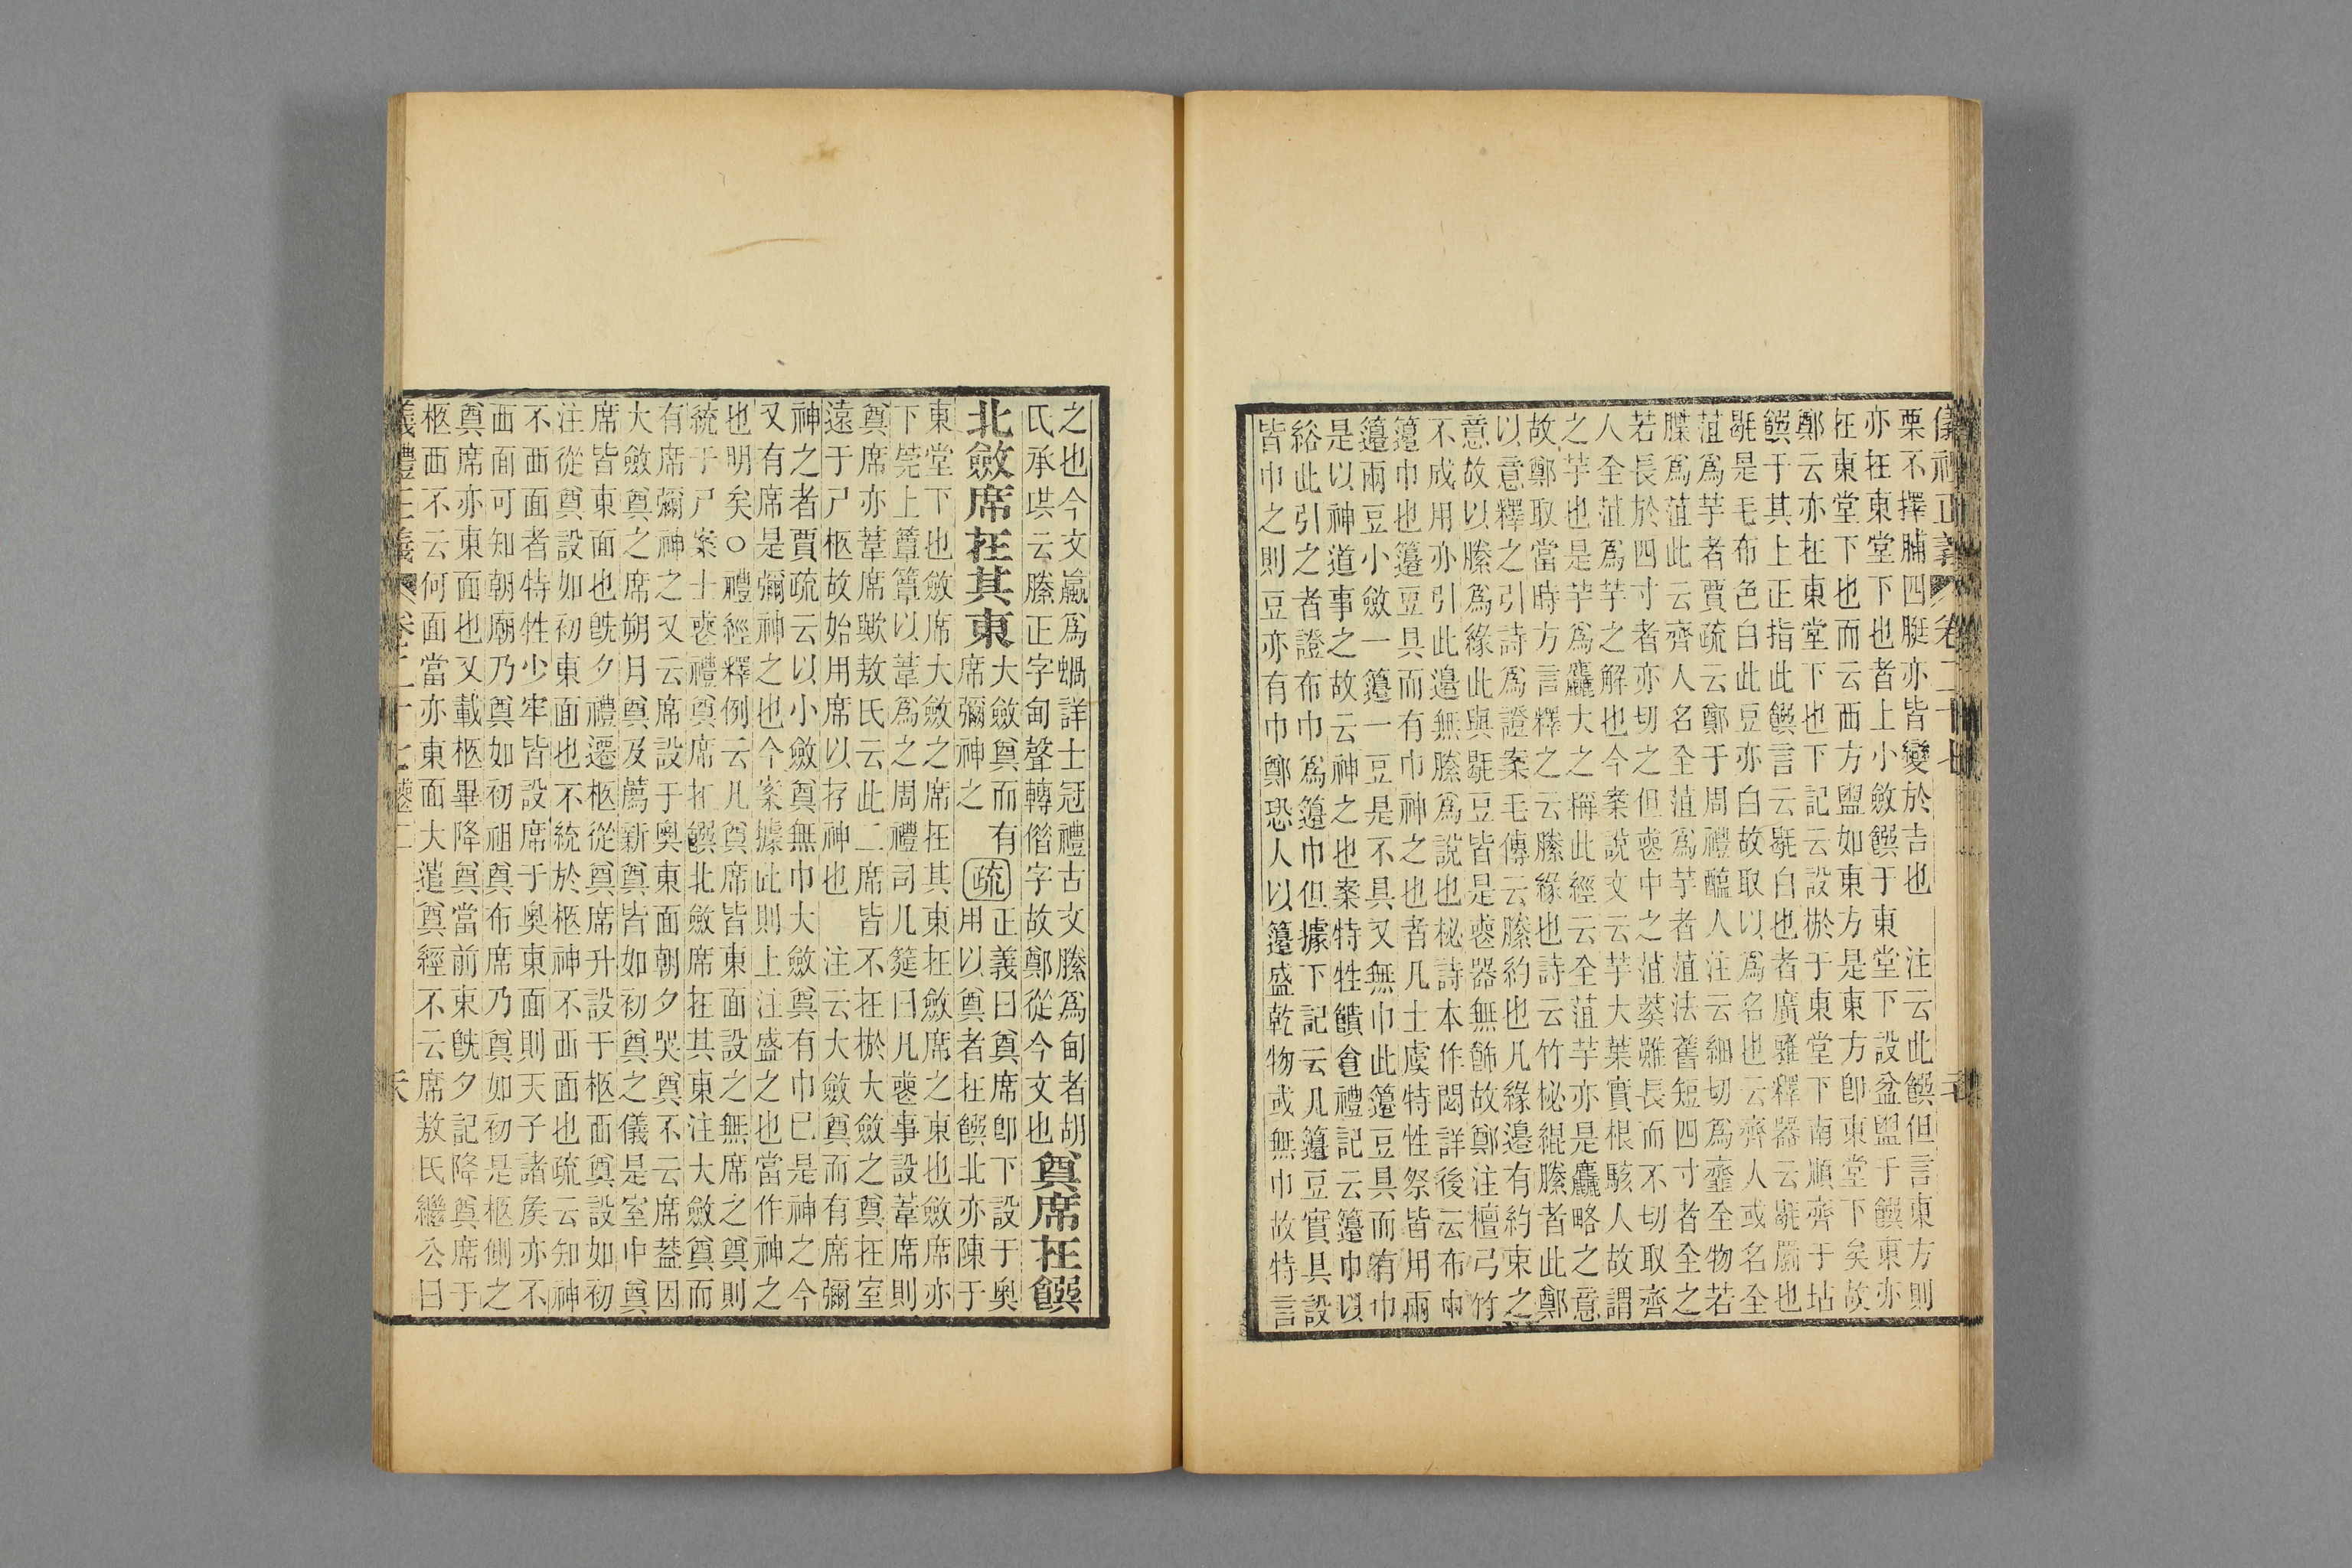 栗不擇脯四脡亦皆變於吉也　注云此饌但言東方則
亦在東堂下也者上小斂饌于東堂下設盆盥于饌東亦
在東堂下也而云西方盥如東方是東方卽東堂下矣故
鄭云亦在東堂下也下記云設棜于東堂下南順齊于坫
饌于其上正指此饌言云毼白也者廣雅釋器云毼罽也
毼是毛布色白此豆亦白故取以爲名也云齊人或名全
菹爲芋者賈疏云鄭于周禮醢人注云細切爲齏全物若
䐑爲菹此云齊人名全菹爲芋者菹法舊短四寸者全之
若長於四寸者亦切之但喪中之菹葵雖長而不切取齊
人全菹爲芋之解也今案說文云芋大葉實根駭人故謂
之芋也是芋爲麤大之稱此經云全菹芋亦是麤略之意
故鄭取當時方言釋之云縢緣也詩云竹柲緄縢者此鄭
以意釋之引詩爲證案毛傳云縢約也凡緣邊有約束之
意故以縢爲緣此與毼豆皆是喪器無飾故鄭注檀弓竹
不成用亦引此邊無縢爲說也柲詩本作閟詳後云布巾
籩巾也籩豆具而有巾神之也者凡士虞特牲祭皆用兩
籩兩豆小斂一籩一豆是不具又無巾此籩豆具而有巾
是以神道事之故云神之也案特牲饋食禮記云籩巾以
綌此引之者證布巾爲籩巾但據下記云凡籩豆實具設
皆巾之則豆亦有巾鄭恐人以籩盛乾物或無巾故特言
之也今文蠃爲蝸詳士冠禮古文縢爲甸者胡
氏承珙云縢正字甸聲轉偕字故鄭從今文也
奠席在饌
北斂席在其東
大斂奠而有
席彌神之
疏
正義曰奠席卽下設于奧
用以奠者在饌北亦陳于
東堂下也斂席大斂之席在其東在斂席之東也斂席亦
下莞上簟簟以葦爲之周禮司几筵曰凡喪事設葦席則
奠席亦葦席歟敖氏云此二席皆不在棜大斂之奠在室
遠于尸柩故始用席以存神也　注云大斂奠而有席彌
神之者賈疏云以小斂奠無巾大斂奠有巾已是神之今
又有席是彌神之也今案據此則上注盛之也當作神之
也明矣○禮經釋例云凡奠席皆東面設之無席之奠則
統于尸案士喪禮奠席在饌北斂席在其東注大斂奠而
有席彌神之又云席設于奧東面朝夕哭奠不云席蓋因
大斂奠之席朔月奠及薦新奠皆如初奠之儀是室中奠
席皆東面也旣夕禮遷柩從奠席升設于柩西奠設如初
注從奠設如初東面也不統於柩神不西面也疏云知神
不西面者特牲少牢皆設席于奧東面則天子諸矦亦不
西面可知朝廟乃奠如初祖奠布席乃奠如初是柩側之
奠席亦東面也又載柩畢降奠當前束旣夕記降奠席于
柩西不云何面當亦東面大遣奠經不云席敖氏繼公曰